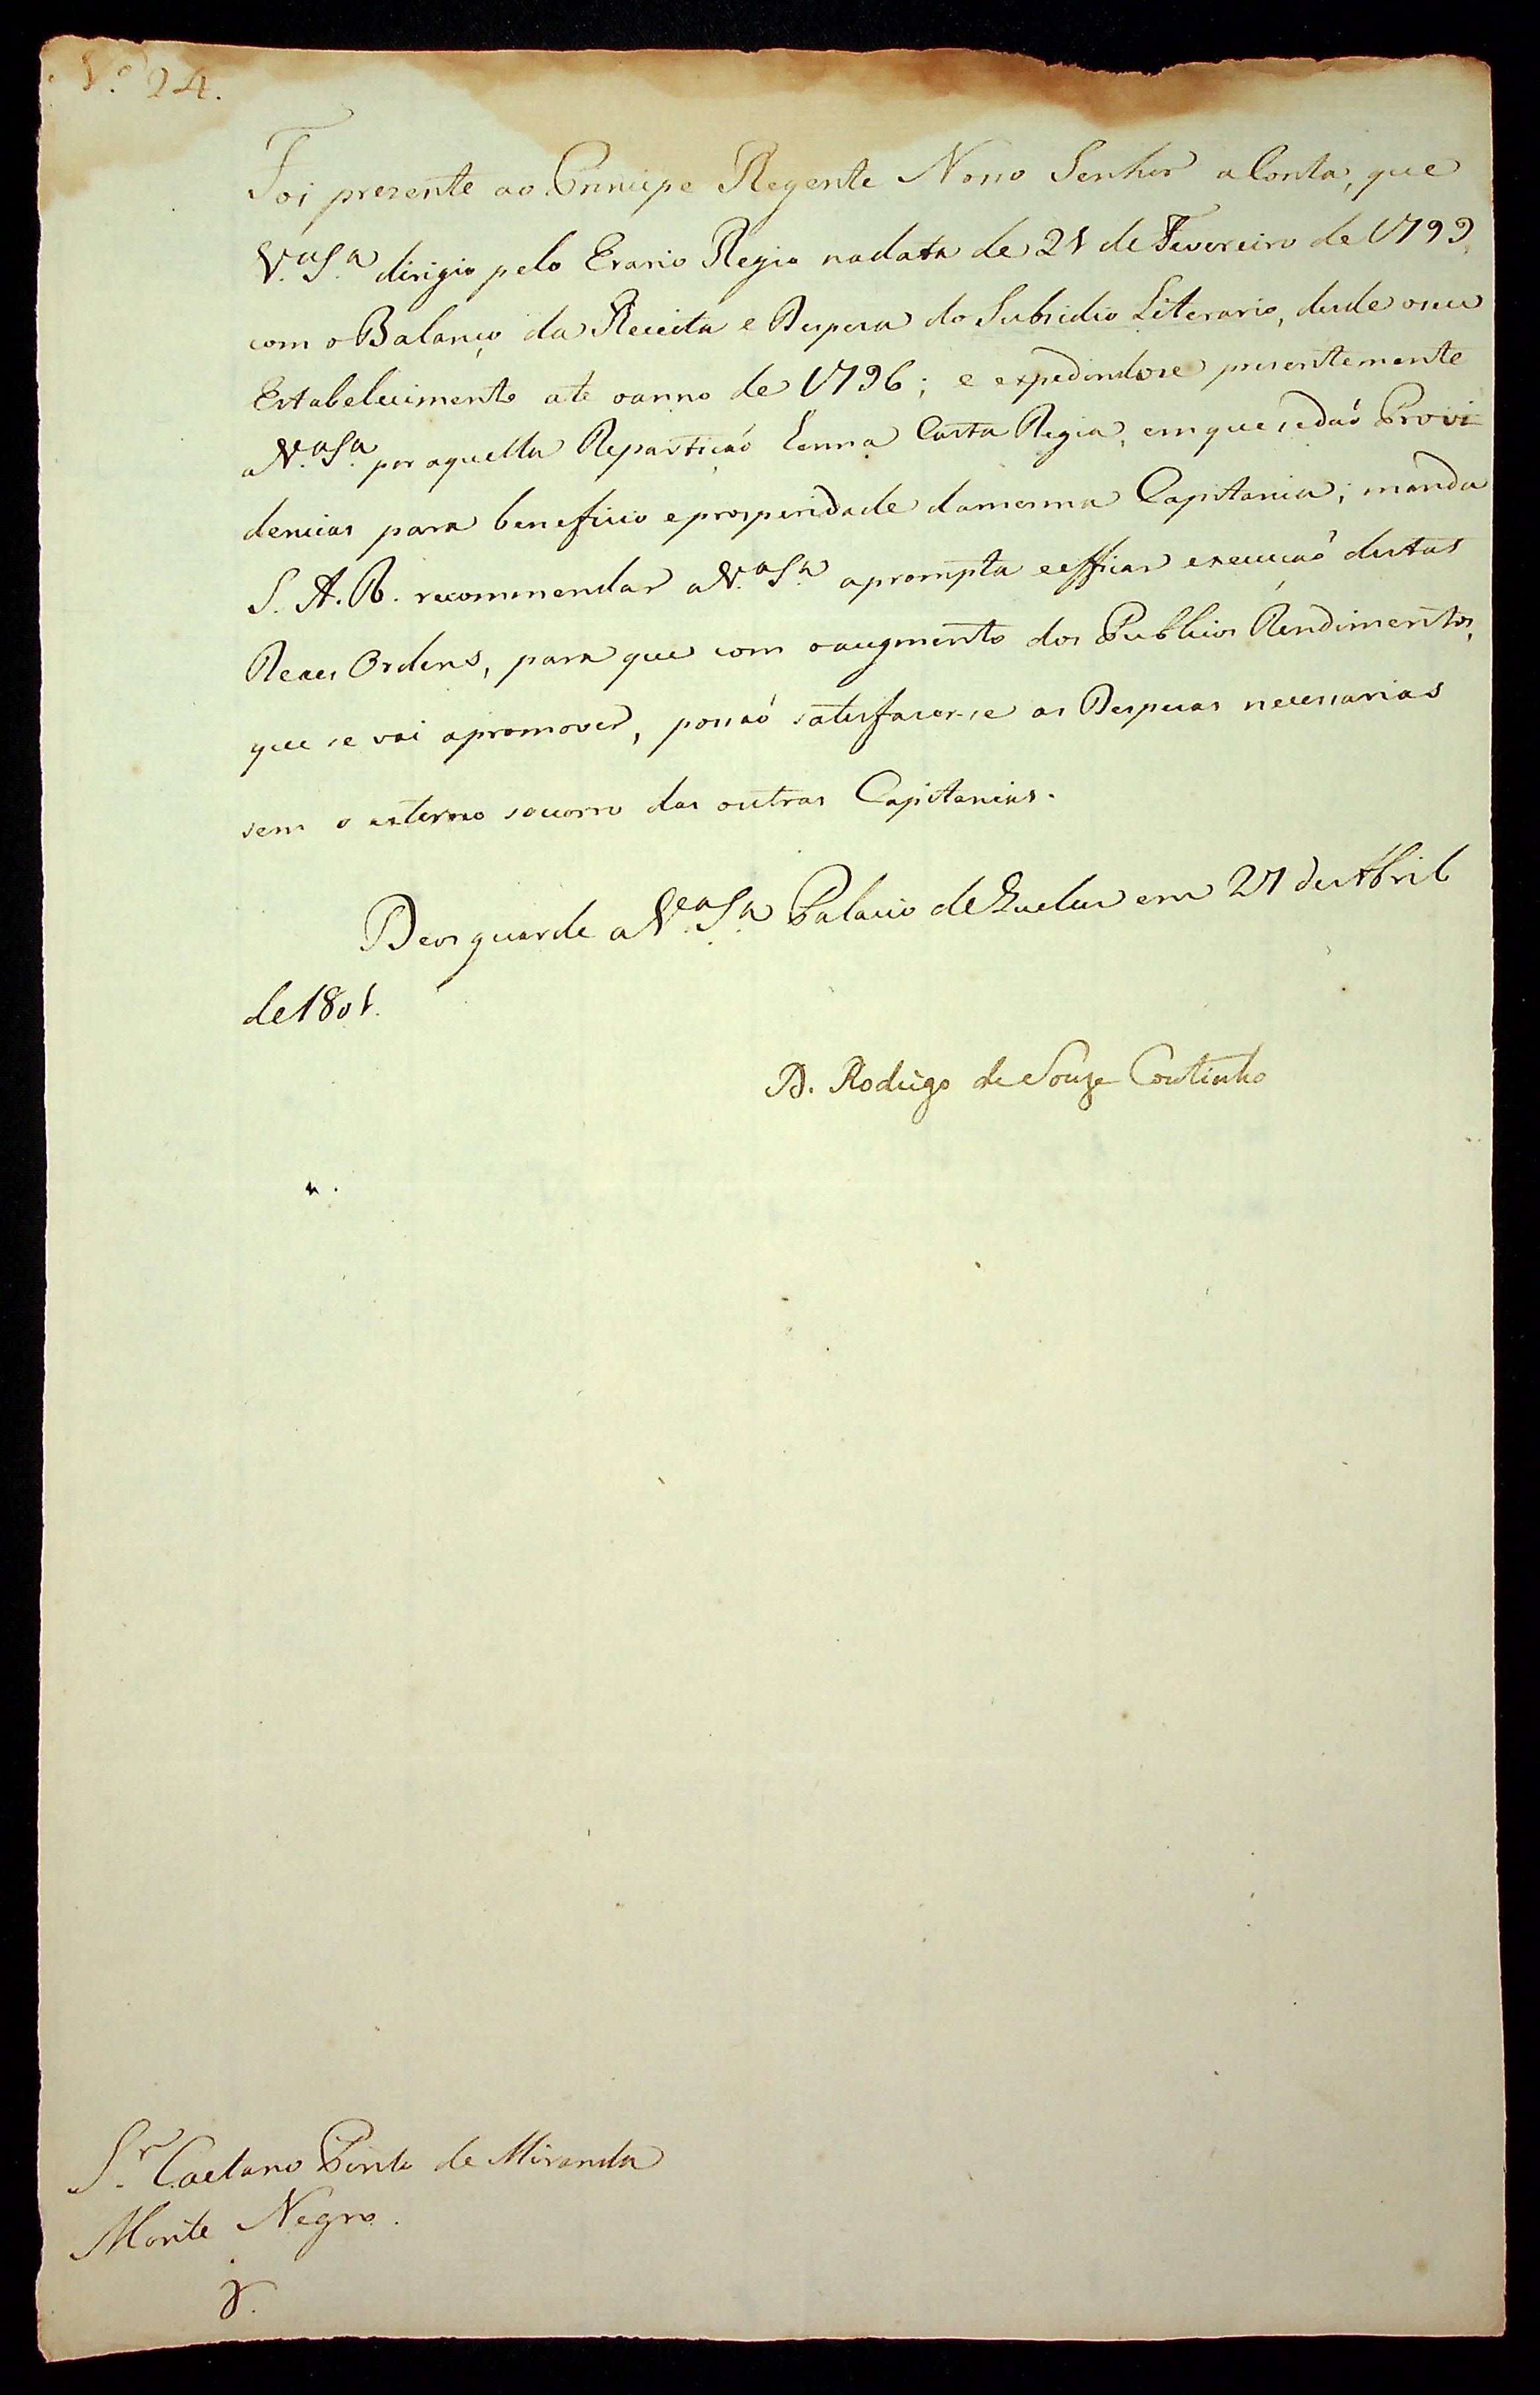 N.º 24.
Foi presente ao Principe Regente Nosso Senhor a Conta, que
V.ª S.ª dirigio pelo Erario Regio na data de 21 de Fevereiro de 1799,
com o Balanço da Receita e Despeza do Subsidio Literario, desde o seu
Estabelecimento até o anno de 1796; e expedindose presentemente
a V.ª S.ª por aquella Repartição huma Carta Regia, em que se dão Provi-
dencias para beneficio e prosperidade da mesma Capitania; manda
S. A. R. recommendar a V.ª S.ª a prompta e efficaz execução destas
Reaes Ordens, para que com o augmento dos Publicos Rendimentos,
que se vai a promover, possão satisfazer-se as Despezas necessarias
sem o externo socorro das outras Capitanias.
Deos guarde a V.ª S.ª Palacio de Queluz em 27 de Abril
de 1801.
D. Rodrigo de Souza Coutinho
S.r Caetano Pinto de Miranda
Monte Negro.